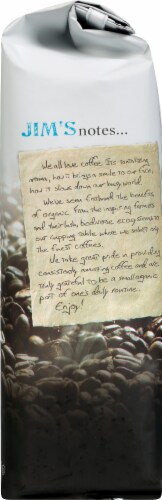 JIM'S notes...
We all love coffee. Its enveloping
aroma, how it brings a smile to our face,
how it slows down our busy world.
We've seen firsthand the benefits
of organic from the inspiring farmers
and their lush, biodiverse ecosystems to
our cupping table where we select only
the finest coffees.
We take great pride in providing
consistently amazing coffee and are
truly grateful to be a small organic
part of one's daily routine.
Enjoy!